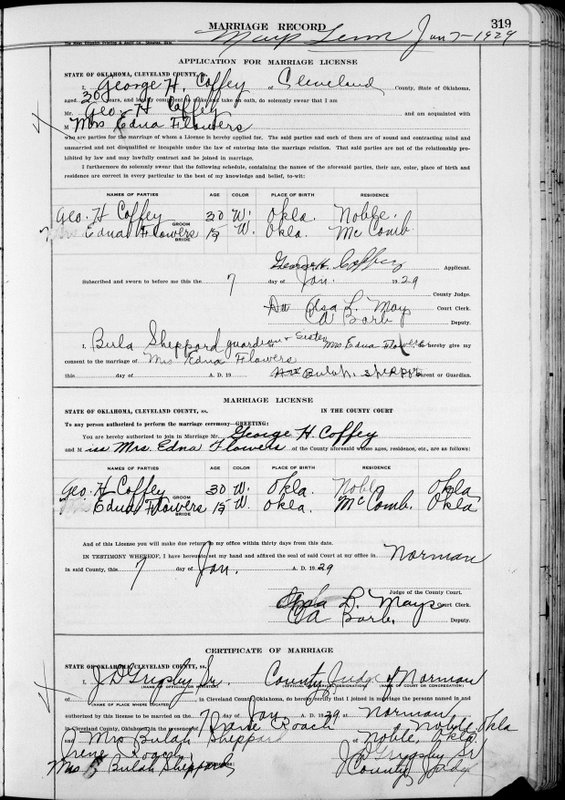 MARRIAGE RECORD 319
Mays Term Jan 7 - 1929
APPLICATION FOR MARRIAGE LICENSE
STATE OF OKLAHOMA, CLEVELAND COUNTY,
I, George H. Coffey of Cleveland County, State of Oklahoma,
aged 30 years, and take an oath, do solemnly swear that I am
Mr. Geo- H Coffey and am acquainted with
M Mrs Edna Flowers
who are parties for the marriage of whom a License is hereby applied for. The said parties and each of them are of sound and contracting mind and
unmarried and not disqualified or incapable under the law of entering into the marriage relation. That said parties are not of the relationship pro-
hibited by law and may lawfully contract and be joined in marriage.
I furthermore do solemnly swear that the following schedule, containing the names of the aforesaid parties, their age, color, place of birth and
residence are correct in every particular to the best of my knowledge and belief, to-wit:
NAMES OF PARTIES AGE COLOR PLACE OF BIRTH RESIDENCE
Geo. H Coffey GROOM 30 W. Okla. Noble.
Edna Flowers BRIDE W. Okla. McComb.
George H. Coffey Applicant.
Subscribed and sworn to before me this the 7 day of Jan. 1929
County Judge.
L. Mays Court Clerk.
CA Barb Deputy.
I, Bula Sheppard guardian + Sister Mrs Edna Flowers hereby give my
consent to the marriage of Mrs Edna Flowers
this day of A. D. 19 Bulah. Sheppar Parent or Guardian.
MARRIAGE LICENSE
STATE OF OKLAHOMA, CLEVELAND COUNTY, ss. IN THE COUNTY COURT
To any person authorized to perform the marriage ceremony—GREETING:
You are hereby authorized to join in Marriage Mr. George H. Coffey
and M iss Mrs. Edna Flowers of the County aforesaid whose ages, residence, etc, are as follows:
NAMES OF PARTIES AGE COLOR PLACE OF BIRTH RESIDENCE
Geo. H Coffey GROOM 30 W. Okla. Noble Okla
Edna Flowers BRIDE W. Okla. McComb. Okla
And of this License you will make due return to my office within thirty days from this date.
IN TESTIMONY WHEREOF, I have hereunto set my hand and affixed the seal of said Court at my office in Norman
in said County, this 7 day of Jan. A. D. 1929
Judge of the County Court.
L. Mays Court Clerk.
CA Barb. Deputy.
CERTIFICATE OF MARRIAGE
STATE OF OKLAHOMA, CLEVELAND COUNTY, ss.
I, J D Grigsby Sr. County Judge of Norman
(NAME OF OFFICIAL OR MINISTER) (NAME OF COURT OR CONGREGATION)
(NAME OF PLACE WHERE LOCATED) in Cleveland County, Oklahoma, do hereby certify that I joined in marriage the persons named in and
authorized by this license to be married on the 7 day of Jan 1929 at Norman
in Cleveland County, Oklahoma, in the presence of Irene Roach of Noble Okla
Mrs Bulah Sheppard of Noble, Okla
Irene Roach J D Grigsby Sr
Mrs Bulah Sheppard County Judge